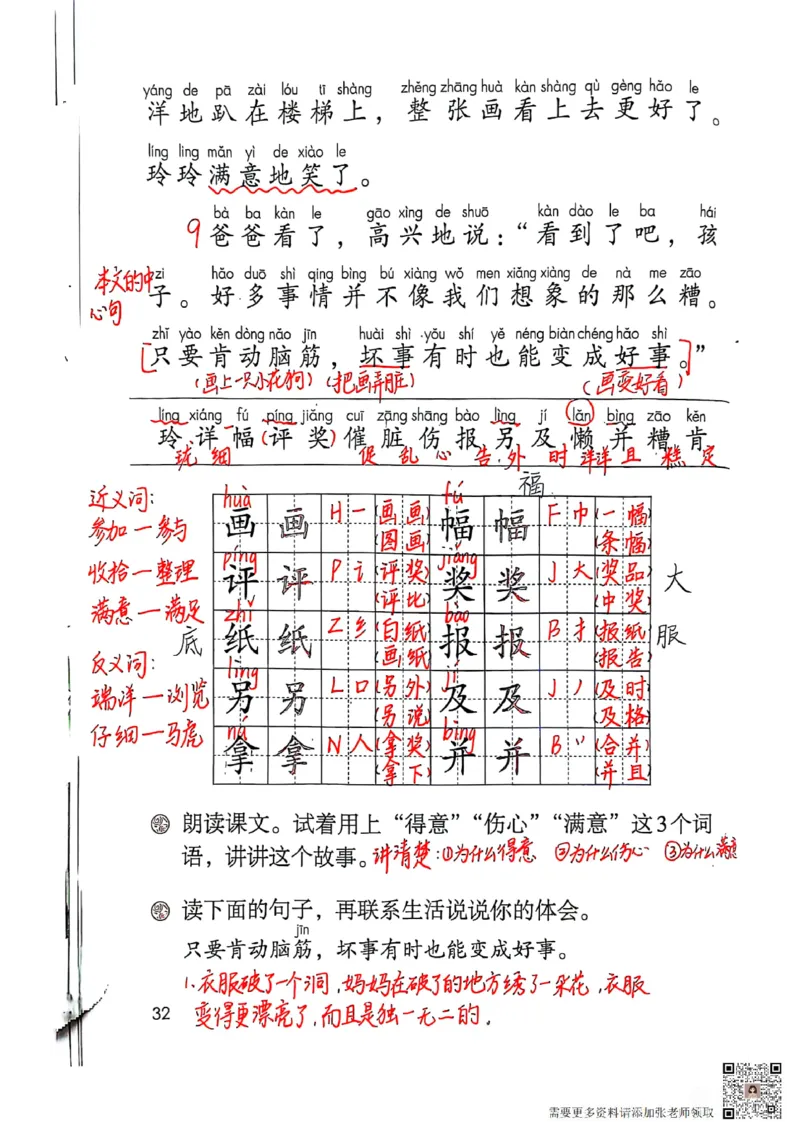 yáng de pā zài lóu tī shàng zhěng zhāng huà kàn shàng qù gèng hǎo le
洋地趴在楼梯上，整张画看上去更好了。
líng líng mǎn yì de xiào le
玲玲满意地笑了。
bà ba kàn le gāo xìng de shuō kàn dào le ba hái
9 爸爸看了，高兴地说：“看到了吧，孩
本文的中心句
zi hǎo duō shì qing bìng bú xiàng wǒ men xiǎng xiàng de nà me zāo
子。好多事情并不像我们想象的那么糟。
zhǐ yào kěn dòng nǎo jīn huài shì yǒu shí yě néng biàn chéng hǎo shì
[只要肯动脑筋，坏事有时也能变成好事。]”
(画上一只小花狗) (把画弄脏) (画变好看)
líng xiáng fú píng jiǎng cuī zāng shāng bào lìng jí lǎn bìng zāo kěn
玲详幅(评奖)催脏伤报另及懒并糟肯
珑 细 促 乱 心 告 外 时 洋洋 且 糕 定
福
近义词：
参加—参与
收拾—整理
满意—满足
反义词：
端详—浏览
仔细—马虎
huà fú
画 画 H 一 (画画) (图画) 幅 幅 F 巾 (一幅) (条幅)
píng jiǎng
评 评 P 讠 (评奖) (评比) 奖 奖 J 大 (奖品) (中奖) 大
zhǐ bào
底 纸 纸 Z 纟 (白纸) (画纸) 报 报 B 扌 (报纸) (报告) 服
lìng jí
另 另 L 口 (另外) (另说) 及 及 J 丿 (及时) (及格)
ná bìng
拿 拿 N 人 (拿奖) (拿下) 并 并 B 丷 (合并) (并且)
朗读课文。试着用上“得意”“伤心”“满意”这3个词
语，讲讲这个故事。讲清楚：①为什么得意 ②为什么伤心 ③为什么满意
读下面的句子，再联系生活说说你的体会。
jīn
只要肯动脑筋，坏事有时也能变成好事。
1.衣服破了一个洞，妈妈在破了的地方绣了一朵花，衣服
变得更漂亮了，而且是独一无二的。
32
需要更多资料请添加张老师领取